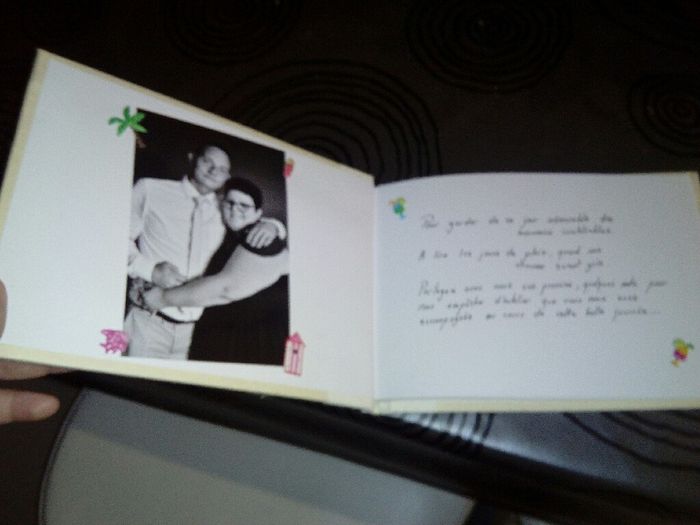 Pour garder de ce jour inoubliable des
souvenirs inoubliables
A lire les jours de pluie, quand nos
seront gris
Partagez avec nous vos pensées, quelques mots pour
nous empêcher d'oublier que vous nous avez
accompagnés au cours de cette belle journée...